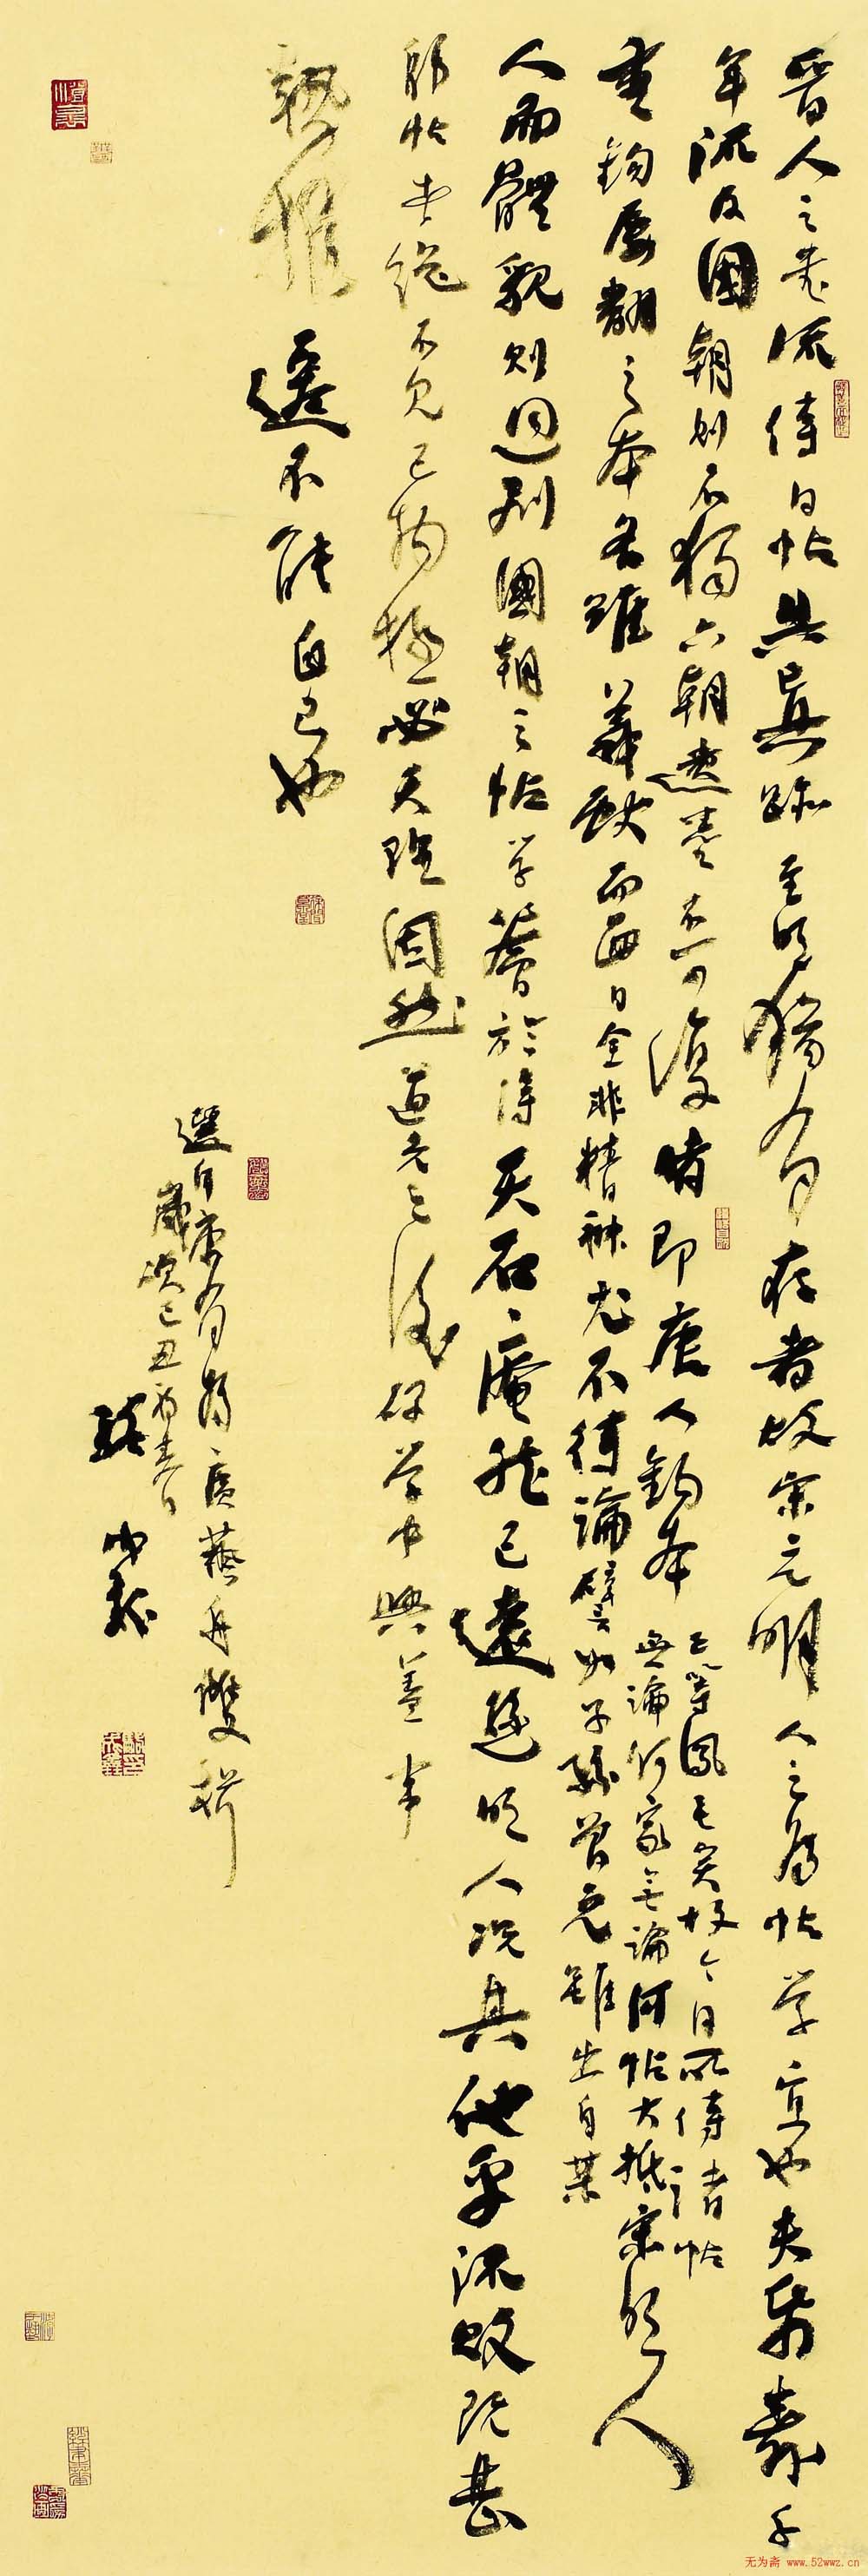 晉人之書流傳曰帖其真跡至明猶有存者故宋元明人之為帖學宜也夫紙壽千
年流及國朝則不獨六朝遺墨不可復睹即唐人鈎本已等鳳毛矣故今日所傳諸帖
無論何家無論何帖大抵宋明人
重鈎屢翻之本名雖羲獻面目全非精神尤不待論譬如子孫曾玄雖出自某
人而體貌則迥別國朝之帖學薈於得天石庵然已遠遜明人況其他乎流敗既甚
師帖者絕不見已物極必天理固然道光之後碑學中興蓋事
勢推遷不能自已也
選自康有為廣藝舟雙楫
歲次己丑初春
无为斋 www.52wwz.cn